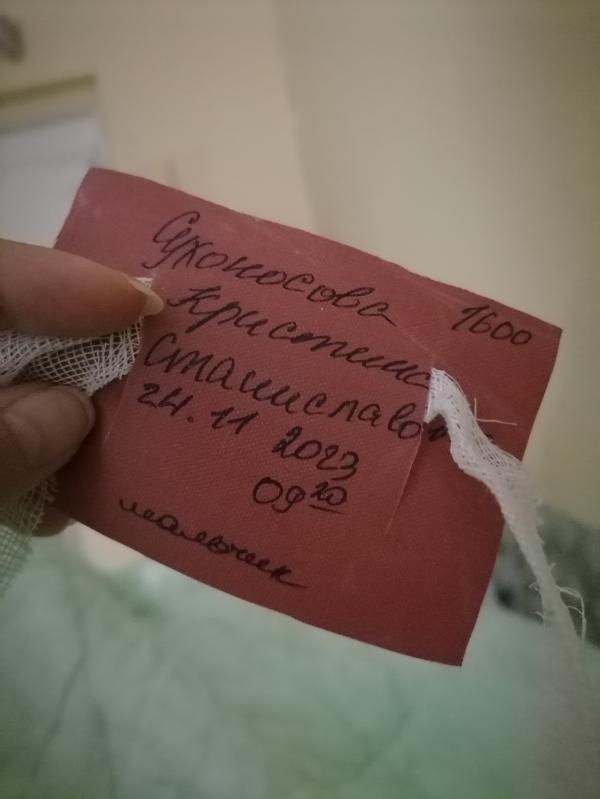 Сухоносова 1600
Кристина
Станиславовна
24.11 2023
09 20
мальчик